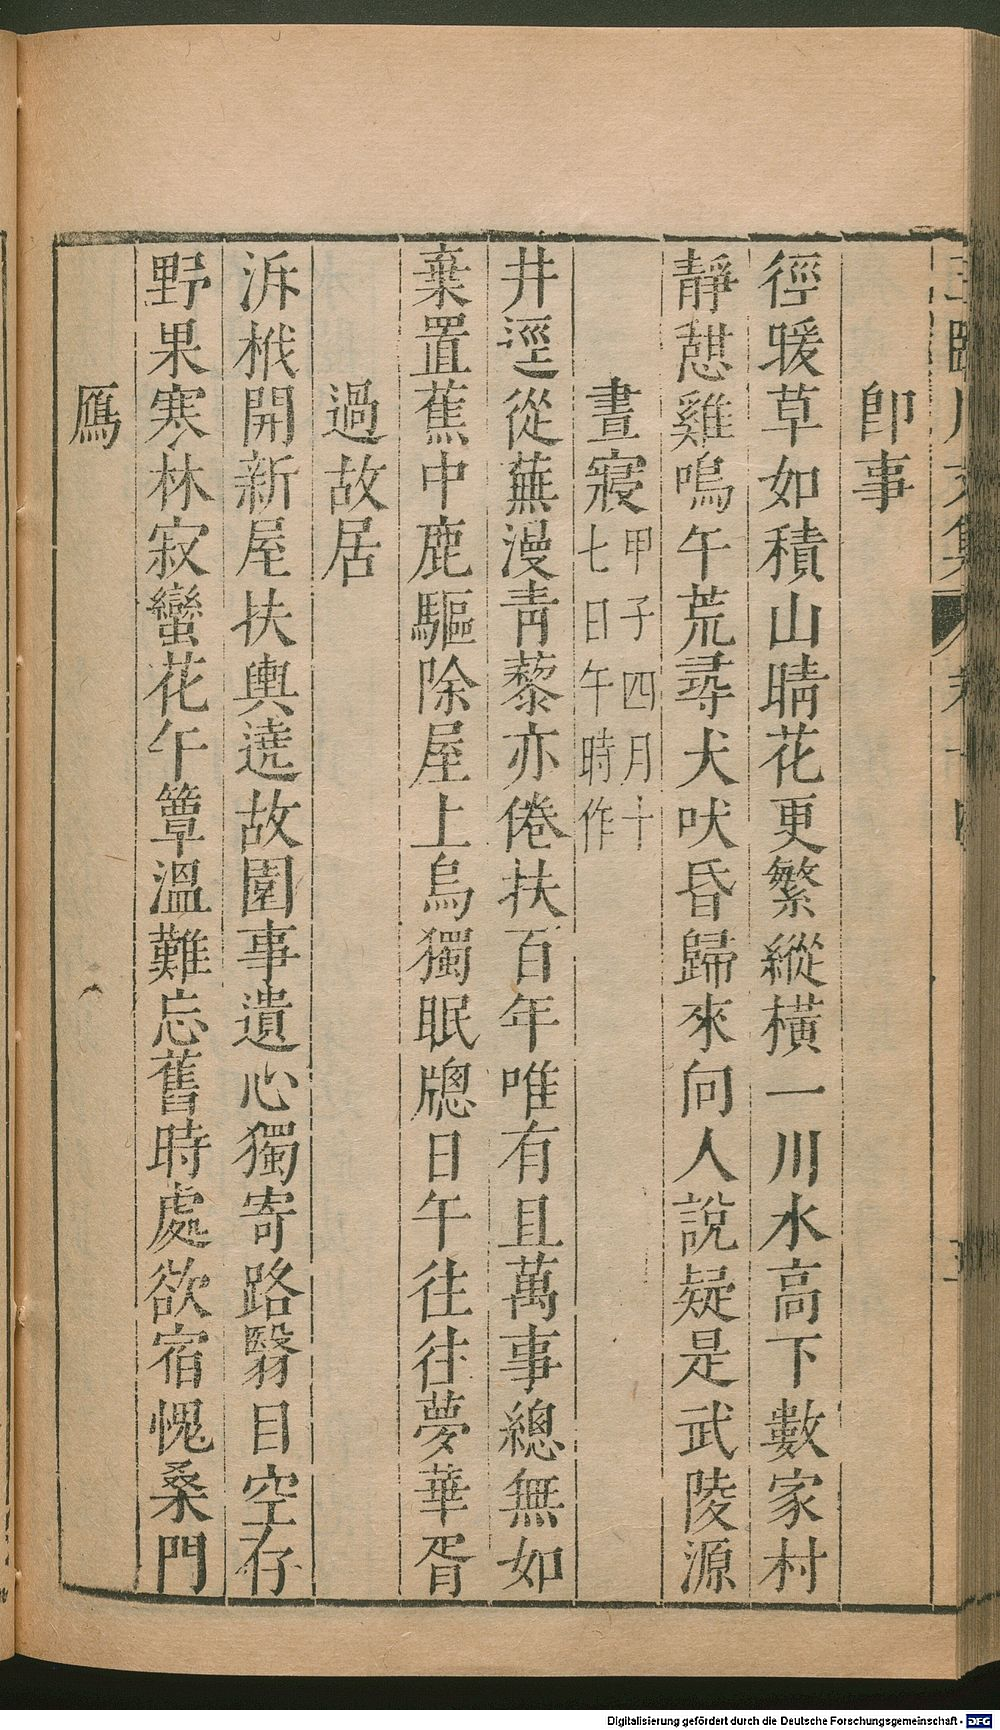 即事
徑暖草如積山晴花更繁縱橫一川水高下數家村
靜憩雞鳴午荒尋犬吠昏歸來向人說疑是武陵源
晝寢甲子四月十七日午時作
井逕從蕪漫青藜亦倦扶百年唯有且萬事總無如
棄置蕉中鹿驅除屋上烏獨眠牕日午往往夢華胥
過故居
泝栰開新屋扶輿遶故園事遺心獨寄路翳目空存
野果寒林寂蠻花午簟溫難忘舊時處欲宿愧桑門
鴈
Digitalisierung gefördert durch die Deutsche Forschungsgemeinschaft - DFG